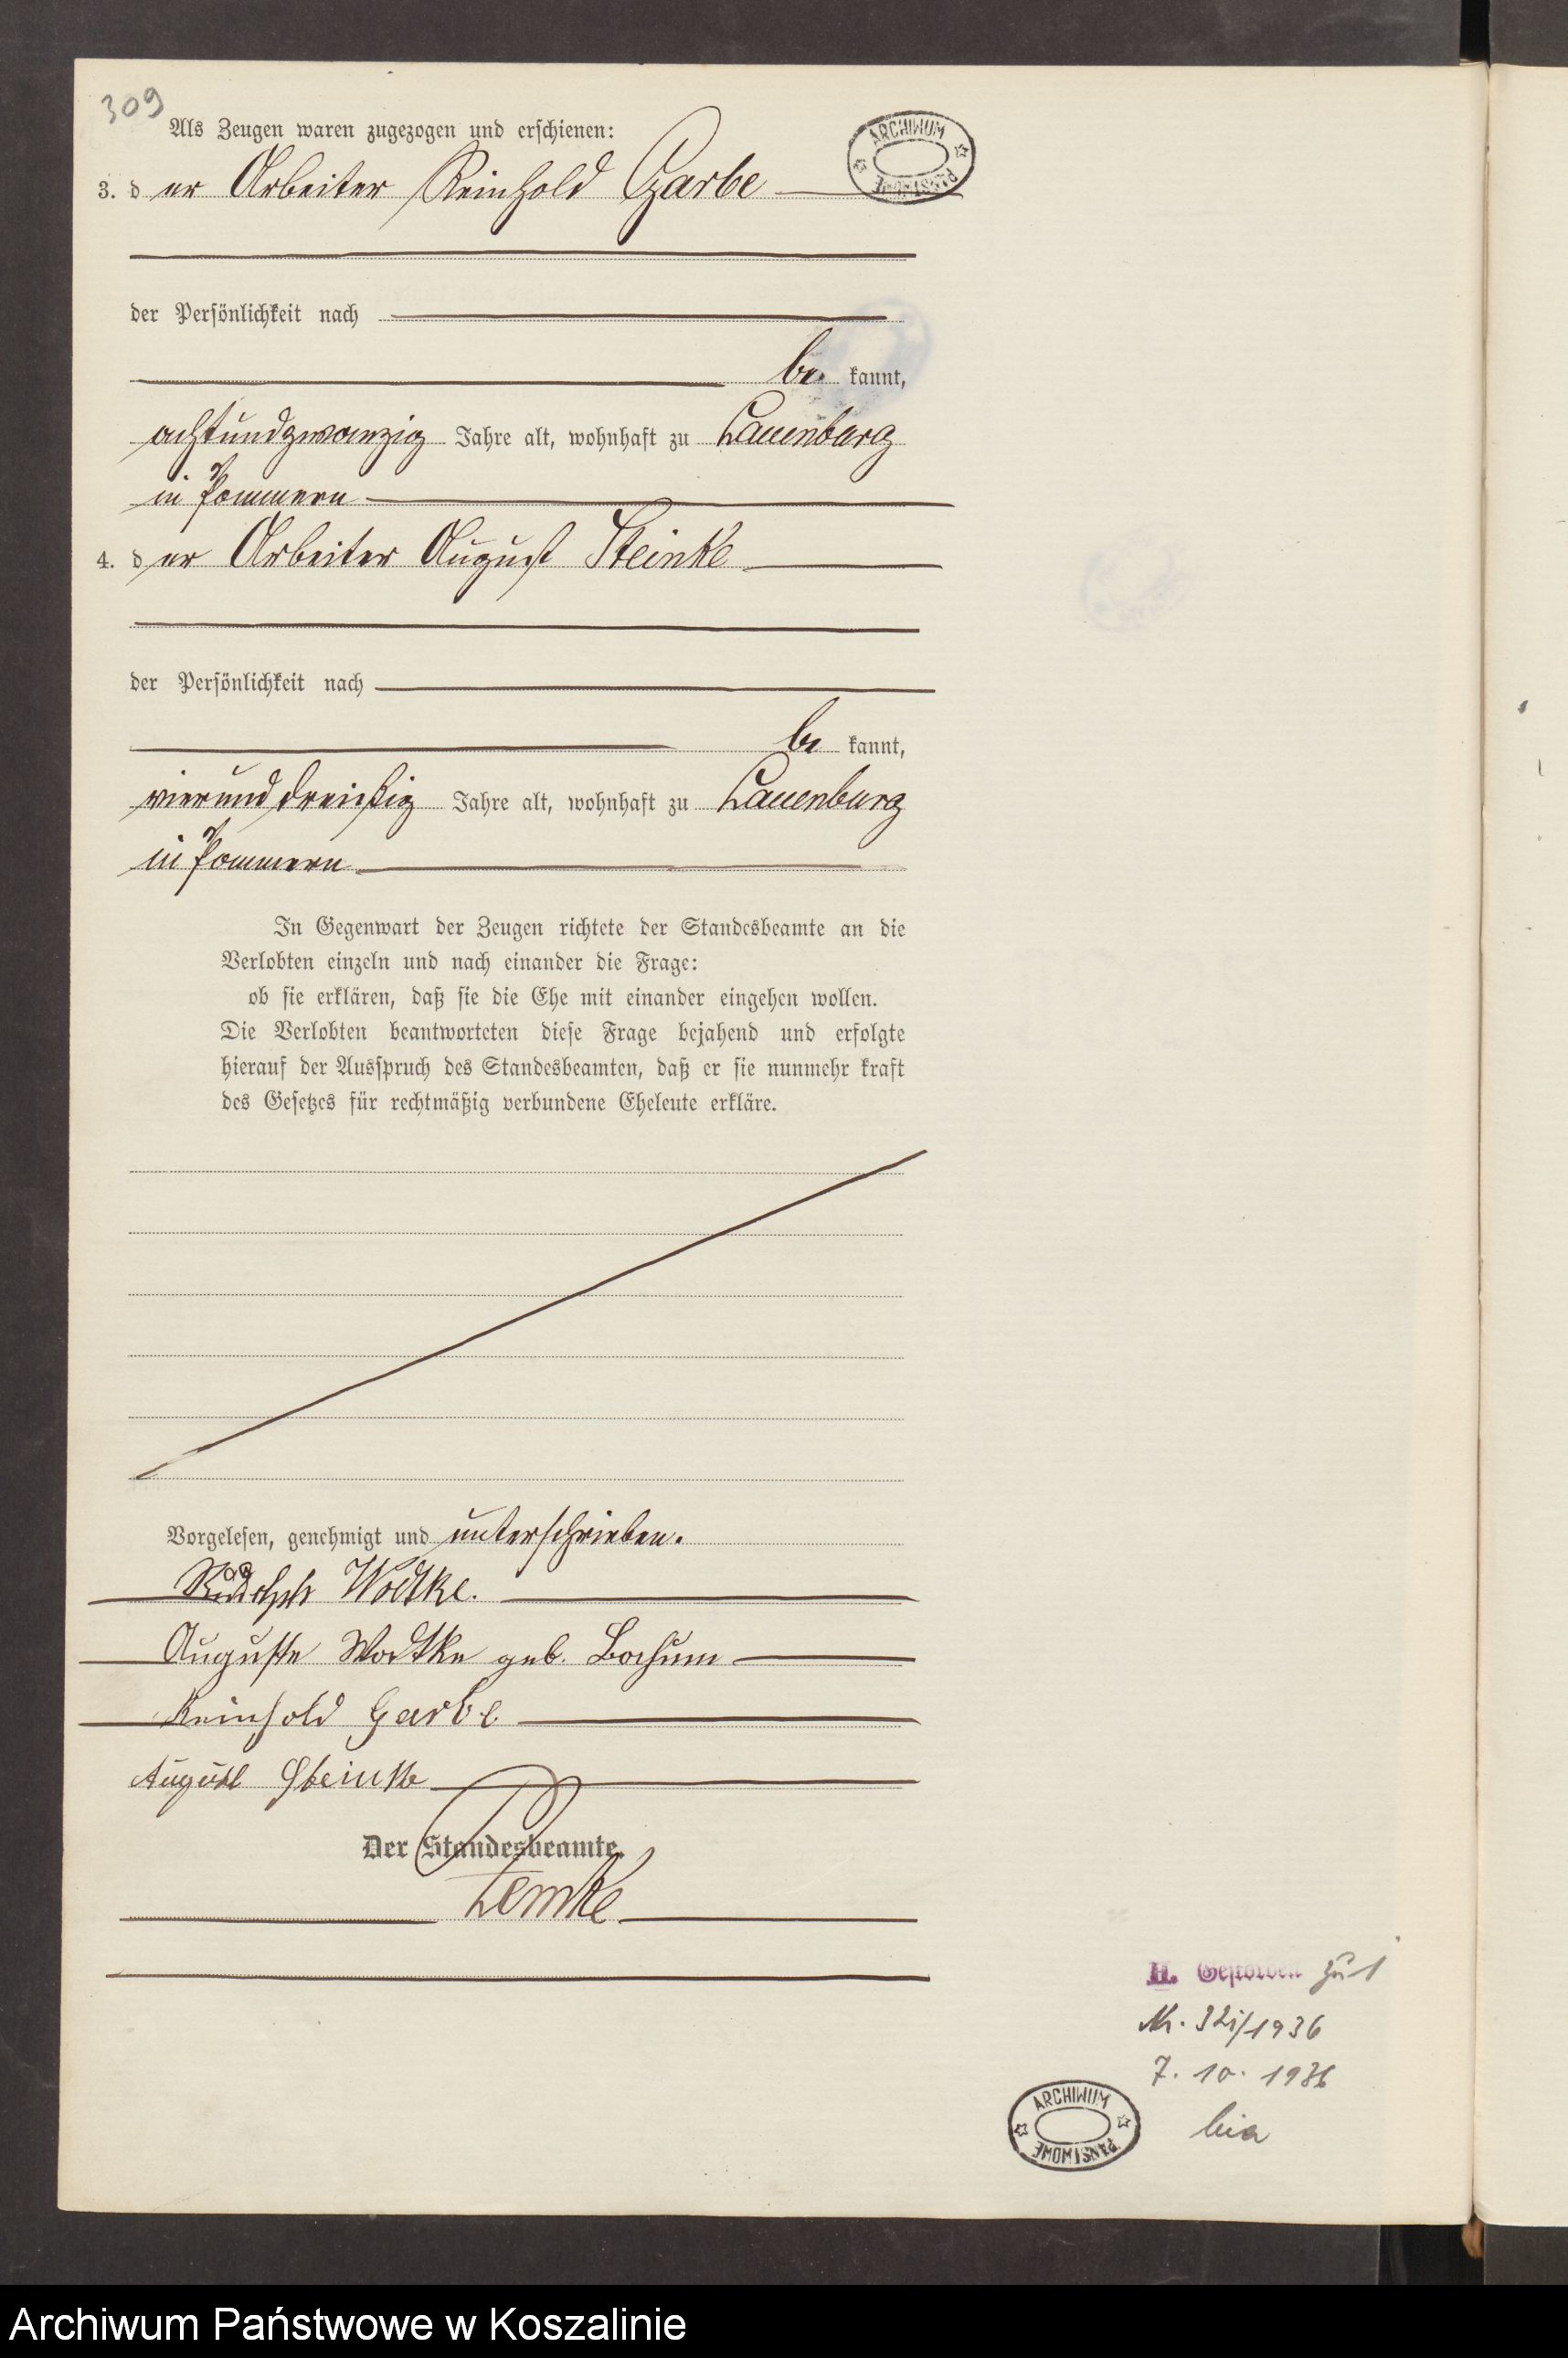 309
Als Zeugen waren zugezogen und erschienen:
ARCHIWUM PAŃSTWOWE
3. der Arbeiter Reinhold Garbe
der Persönlichkeit nach
be kannt,
achtundzwanzig Jahre alt, wohnhaft zu Lauenburg
in Pommern
4. der Arbeiter August Steinke
der Persönlichkeit nach
be kannt,
vierunddreißig Jahre alt, wohnhaft zu Lauenburg
in Pommern
In Gegenwart der Zeugen richtete der Standesbeamte an die
Verlobten einzeln und nach einander die Frage:
ob sie erklären, daß sie die Ehe mit einander eingehen wollen.
Die Verlobten beantworteten diese Frage bejahend und erfolgte
hierauf der Ausspruch des Standesbeamten, daß er sie nunmehr kraft
des Gesetzes für rechtmäßig verbundene Eheleute erkläre.
Vorgelesen, genehmigt und unterschrieben.
Wodtke.
Auguste Wodtke geb. Bochum
Reinhold Garbe
August Steinke
Der Standesbeamte.
Lemke
H. Gestorben zu 1
Nr. /1936
7. 10. 1936
ARCHIWUM PAŃSTWOWE
Archiwum Państwowe w Koszalinie